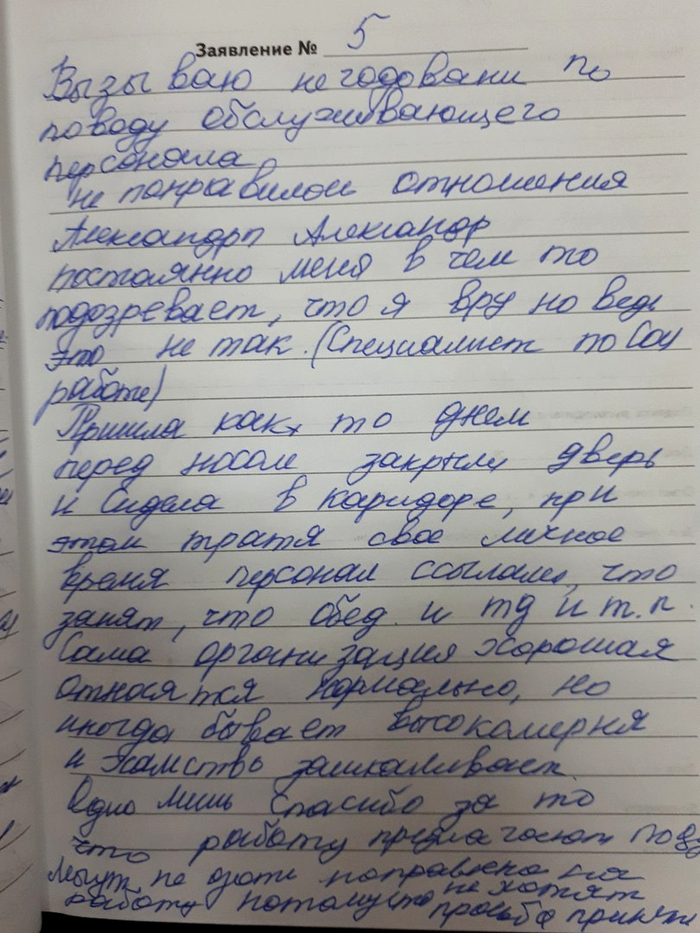 Заявление № 5
Вызываю негодовани по
поводу обслуживающего
персонала
не понравилос отношения
Александрп Александр
постоянно меня в чем то
подозревает, что я вру но ведь
это не так. (Специалист по Соц
работе)
Пришла как то днем
перед носом закрыли дверь
и Сидела в каридоре, при
этом тратя свое личное
время персонал ссылалис, что
занят, что обед. и тд и т.п.
Сама организация Хорошая
относятся нормально, но
иногда бывает высокомерня
и Хамство зашкаливает.
Одно лишь Спасибо за то
что работу предлагают
Могут не дать направлена на
работу потомушто не хотят
просьбо принят